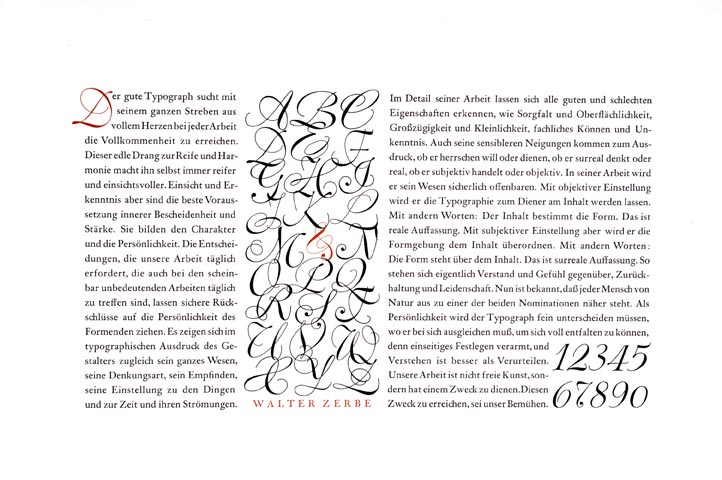 Der gute Typograph sucht mit
seinem ganzen Streben aus
vollem Herzen bei jeder Arbeit
die Vollkommenheit zu erreichen.
Dieser edle Drang zur Reife und Har-
monie macht ihn selbst immer reifer
und einsichtsvoller. Einsicht und Er-
kenntnis aber sind die beste Voraus-
setzung innerer Bescheidenheit und
Stärke. Sie bilden den Charakter
und die Persönlichkeit. Die Entschei-
dungen, die unsere Arbeit täglich
erfordert, die auch bei den schein-
bar unbedeutenden Arbeiten täglich
zu treffen sind, lassen sichere Rück-
schlüsse auf die Persönlichkeit des
Formenden ziehen. Es zeigen sich im
typographischen Ausdruck des Ge-
stalters zugleich sein ganzes Wesen,
seine Denkungsart, sein Empfinden,
seine Einstellung zu den Dingen
und zur Zeit und ihren Strömungen.
ABC
DEF
GHIJ
K
M L N
OPQ
RST
UVW
XYZ
WALTER ZERBE
Im Detail seiner Arbeit lassen sich alle guten und schlechten
Eigenschaften erkennen, wie Sorgfalt und Oberflächlichkeit,
Großzügigkeit und Kleinlichkeit, fachliches Können und Un-
kenntnis. Auch seine sensibleren Neigungen kommen zum Aus-
druck, ob er herrschen will oder dienen, ob er surreal denkt oder
real, ob er subjektiv handelt oder objektiv. In seiner Arbeit wird
er sein Wesen sicherlich offenbaren. Mit objektiver Einstellung
wird er die Typographie zum Diener am Inhalt werden lassen.
Mit andern Worten: Der Inhalt bestimmt die Form. Das ist
reale Auffassung. Mit subjektiver Einstellung aber wird er die
Formgebung dem Inhalt überordnen. Mit andern Worten:
Die Form steht über dem Inhalt. Das ist surreale Auffassung. So
stehen sich eigentlich Verstand und Gefühl gegenüber, Zurück-
haltung und Leidenschaft. Nun ist bekannt, daß jeder Mensch von
Natur aus zu einer der beiden Nominationen näher steht. Als
Persönlichkeit wird der Typograph fein unterscheiden müssen,
wo er bei sich ausgleichen muß, um sich voll entfalten zu können,
denn einseitiges Festlegen verarmt, und
Verstehen ist besser als Verurteilen.
Unsere Arbeit ist nicht freie Kunst, son-
dern hat einem Zweck zu dienen. Diesen
Zweck zu erreichen, sei unser Bemühen.
12345
67890